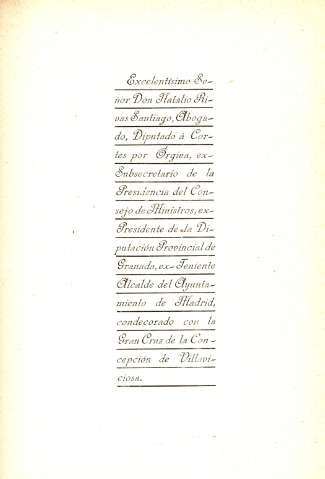 Excelentísimo Se-
ñor Don Natalio Ri-
vas Santiago, Aboga-
do, Diputado á Cor-
tes por Órgiva, ex-
Subsecretario de la
Presidencia del Con-
sejo de Ministros, ex-
Presidente de la Di-
putación Provincial de
Granada, ex-Teniente
Alcalde del Ayunta-
miento de Madrid,
condecorado con la
Gran Cruz de la Con-
cepción de Villavi-
ciosa.